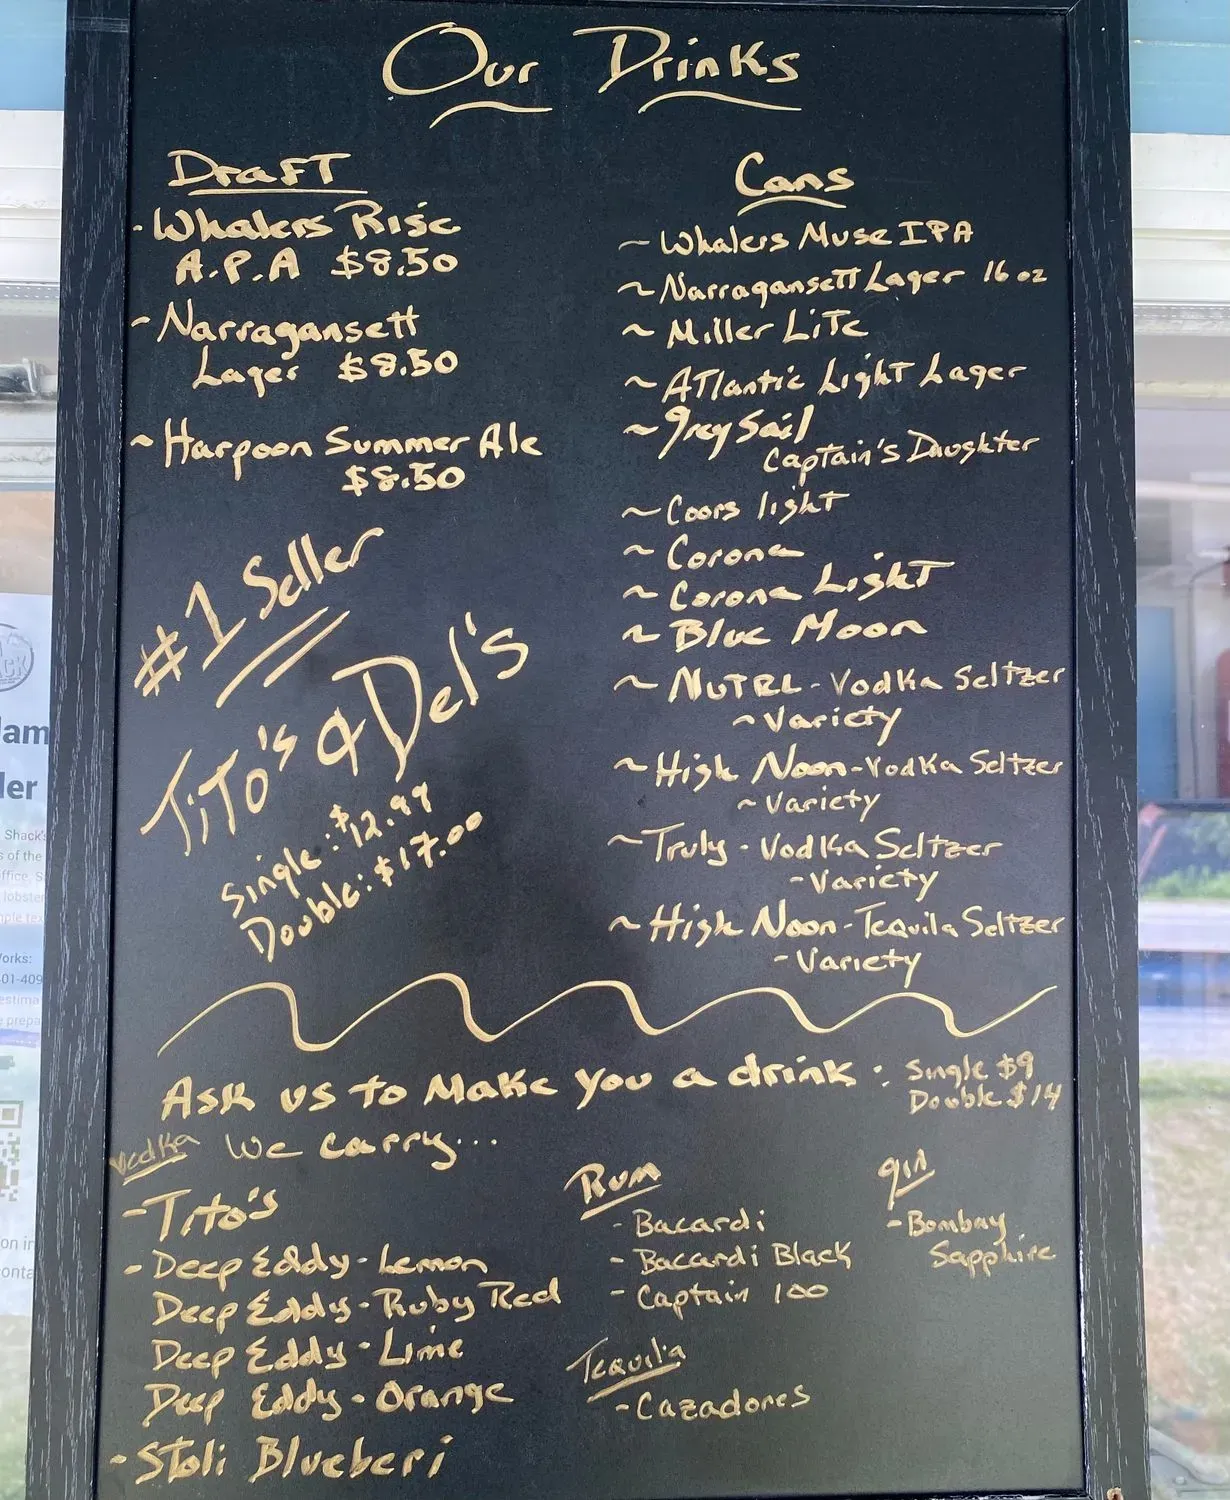 Our Drinks
Draft
- Whalers Rise
A.P.A $8.50
- Narragansett
Lager $8.50
~ Harpoon Summer Ale
$8.50
#1 Seller
Tito's & Del's
Single: $12.99
Double: $17.00
Cans
~ Whalers Muse IPA
~ Narragansett Lager 16 oz
~ Miller Lite
~ Atlantic Light Lager
~ Grey Sail
Captain's Daughter
~ Coors light
~ Corona
~ Corona Light
~ Blue Moon
~ NUTRL - Vodka Seltzer
~ Variety
~ High Noon - Vodka Seltzer
~ Variety
~ Truly - Vodka Seltzer
- Variety
~ High Noon - Tequila Seltzer
- Variety
Ask us to Make you a drink: Single $9
Double $14
We carry...
Vodka
- Tito's
- Deep Eddy - Lemon
Deep Eddy - Ruby Red
Deep Eddy - Lime
Deep Eddy - Orange
- Stoli Blueberi
Rum
- Bacardi
- Bacardi Black
- Captain 100
Tequila
- Cazadores
gin
- Bombay
Sapphire
Shack's
s of the
lobster
Works:
01-409
estima
prepa